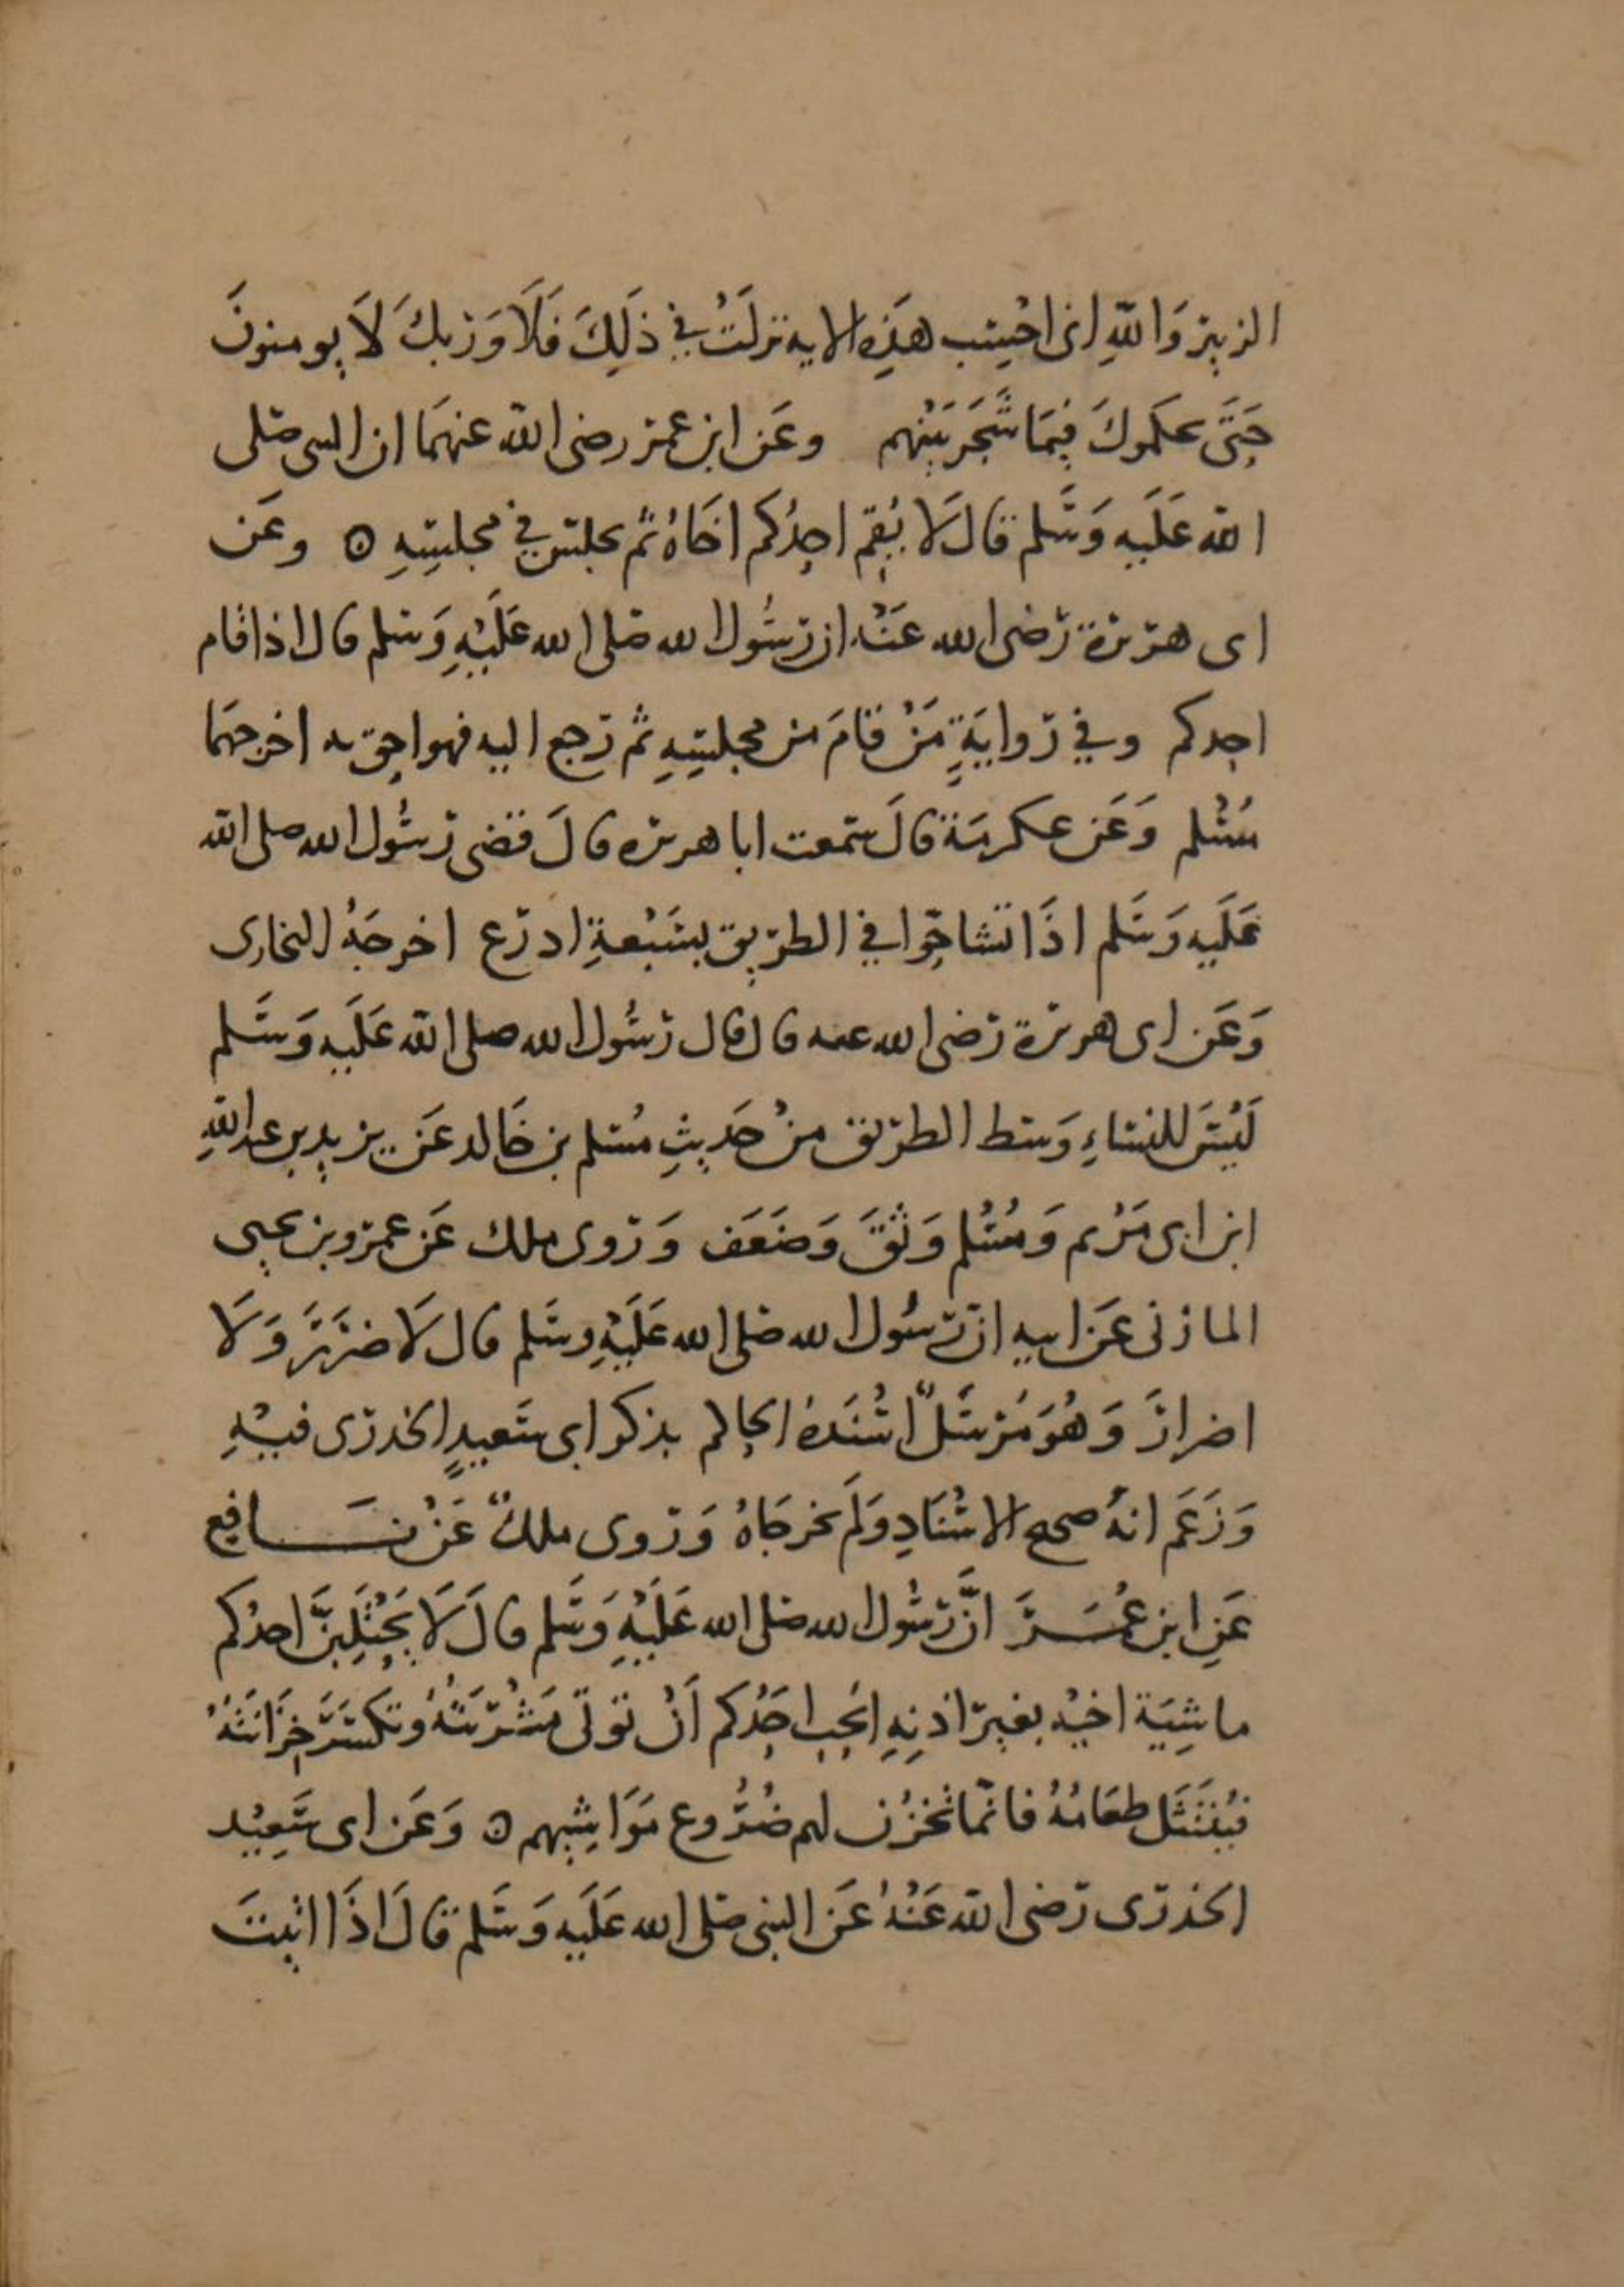 الزبير وَاللهِ انى احْسِب هَذِه الايه نزلَتْ في ذَلِكَ فَلَا وَرَبكَ لَا يومنونَ
حَتَّى يحكموكَ فِيمَا شَجَرَ بَيْنهم وعَن ابن عمر رضى الله عنهمَا ان النبى صَلى
الله عَلَيه وَسَلم قال لَا يُقِم احدُكم اخَاهُ ثم يجلس في مجلسِهِ ⊙ وعَن
ابى هريرة رضى الله عَنْهُ ان رسُول الله صَلى الله عَلَيْهِ وَسلم قال اذا قام
احدكم وفي روايَةٍ مَنْ قَامَ من مجلسِهِ ثم رَجع اليه فهو احق به اخرجهمَا
مُسْلم وَعَن عكرمَة قالَ سمعت ابا هريره قالَ قضى رسُول الله صلى الله
عَلَيه وَسَلم اذَا تشاجّوا في الطريق بسَبْعةِ ادرع اخرجَهُ البخارى
وَعَن ابى هريرة رضى الله عنه قال قال رسُول الله صلى الله عَلَيه وَسَلم
لَيْسَ للنساءِ وَسط الطريق منْ حَديثِ مُسلم بن خَالد عَن يزيد بن عبد اللهِ
ابن ابى مَرْيم وَمُسْلم وَثقَ وَضَعَف وَرَوى ملك عَن عمرو بن يحيى
المازنى عَن ابيه ان رسُول الله صَلى الله عَلَيْهِ وسَلم قال لَا ضرَرَ وَلَا
اضرارَ وَهُوَ مُرسَلٌ اسْنَدهُ الحاكم بذكر ابى سَعيدٍ الخدرى فيْهِ
وَزَعَم انهُ صحيح الاسْنَادِ وَلَم يخرجَاهُ وَرَوى ملكٌ عَنْ نَافِع
عَنِ ابن عُمَرَ انَّ رسُول الله صَلى الله عَلَيْهِ وَسَلم قالَ لَا يَحْتَلِبَنَّ احدُكم
ماشِيَة اخيْه بغير اذنِهِ ايحب احَدُكم اَنْ توتى مَشْرُبَتهُ وتكسَرَ خِزَانَتُهُ
فيُنْتَثَل طعَامُهُ فانما تخزُن لهم ضُرُوع مَوَاشِيهم ⊙ وَعَن ابى سَعِيْد
الخدرى رَضى الله عَنْهُ عَن النبى صَلى الله عَلَيه وَسَلم قالَ اذَا اتيتَ